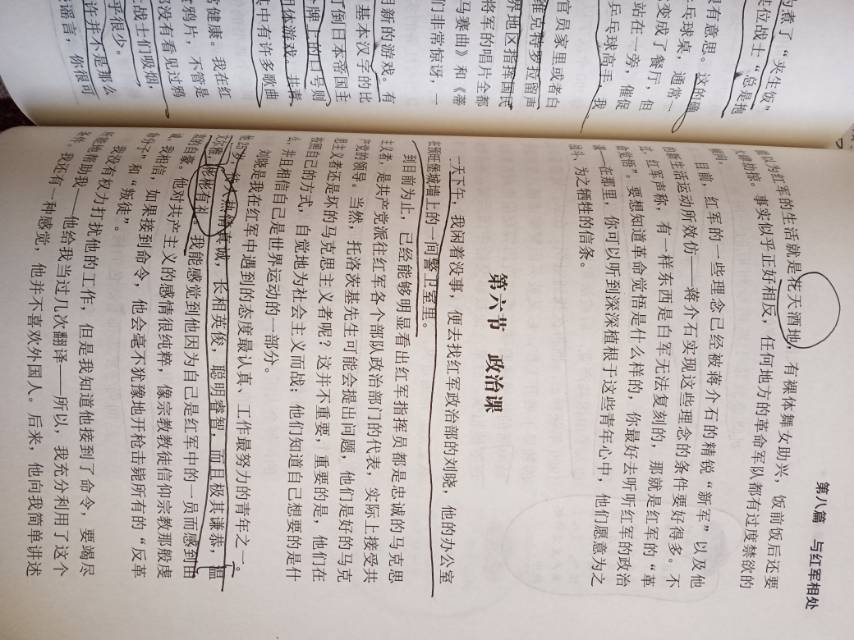 为煮了“夹生饭”
位战士“总是抱
很有意思。这的确
乒乓球桌，通常一
变成了餐厅，但
站在一旁，催促
乒乓球高手，我
官员家里或者白
维克特罗拉留声
界地区指挥国民
将军的唱片全都
马赛曲》和《蒂
们非常惊讶，一
明新的游戏。有
基本汉字的比
打倒日本帝国主
牌上的口号则
团体游戏。
其中有许多歌曲
常健康。我在红
鸦片，不管是
没有看见过鸦
战士们吸烟，
许并不是那么
乎很少。
谣言，你很可
第八篇 与红军相处
以为红军的生活就是花天酒地，有裸体舞女助兴，饭前饭后还要
事实似乎正好相反，任何地方的革命军队都有过度禁欲的
目前，红军的一些理念已经被蒋介石的精锐“新军”以及他
生活运动所效仿——蒋介石实现这些理念的条件要好得多。不
红军声称，有一样东西是白军无法复刻的，那就是红军的“革
要想知道革命觉悟是什么样的，你最好去听听红军的政治
在那里，你可以听到深深植根于这些青年心中，他们愿意为之
为之牺牲的信条。
第六节 政治课
一天下午，我闲着没事，便去找红军政治部的刘晓，他的办公室
在预旺堡城墙上的一间警卫室里。
到目前为止，已经能够明显看出红军指挥员都是忠诚的马克思
主义者，是共产党派往红军各个部队政治部门的代表，实际上接受共
产党的领导。当然，托洛茨基先生可能会提出问题，他们是好的马克
思主义者还是坏的马克思主义者呢？这并不重要，重要的是，他们在
按照自己的方式，自觉地为社会主义而战；他们知道自己想要的是什
么，并且相信自己是世界运动的一部分。
刘晓是我在红军中遇到的态度最认真、工作最努力的青年之一。
热情真诚，长相英俊，聪明睿智，而且极其谦恭，温
彬彬有礼。我能感觉到他因为自己是红军中的一员而感到由
自豪。他对共产主义的感情很纯粹，像宗教教徒信仰宗教那般虔
诚，我相信，如果接到命令，他会毫不犹豫地开枪击毙所有的“反革
命分子”和“叛徒”。
我没有权力打扰他的工作，但是我知道他接到了命令，要竭尽
所能地帮助我——他给我当过几次翻译——所以，我充分利用了这个
条件。我还有一种感觉，他并不喜欢外国人。后来，他向我简单讲述